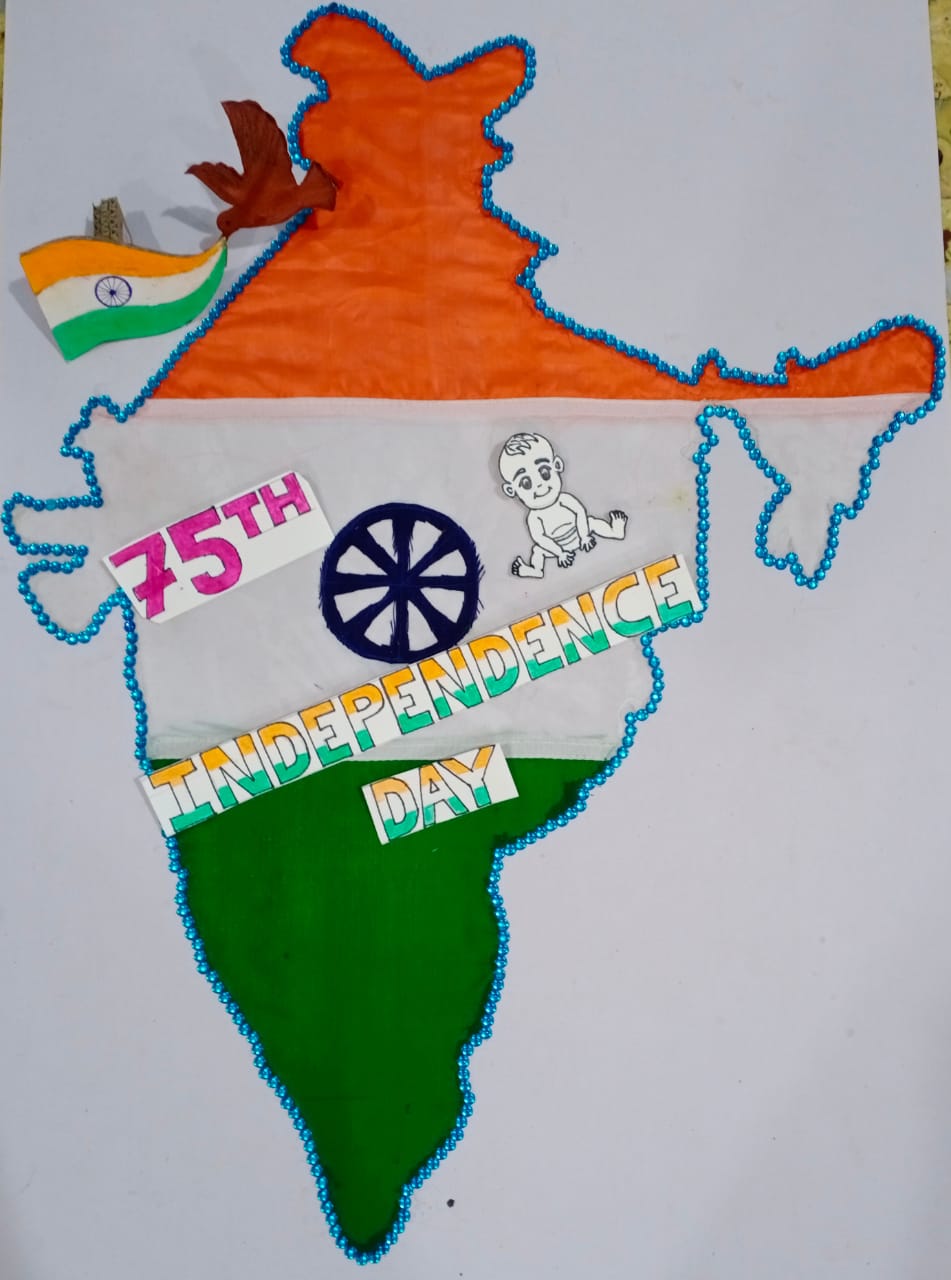 75TH
INDEPENDENCE
DAY